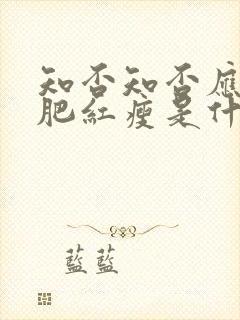 知否知否應
肥紅瘦是什
藍藍